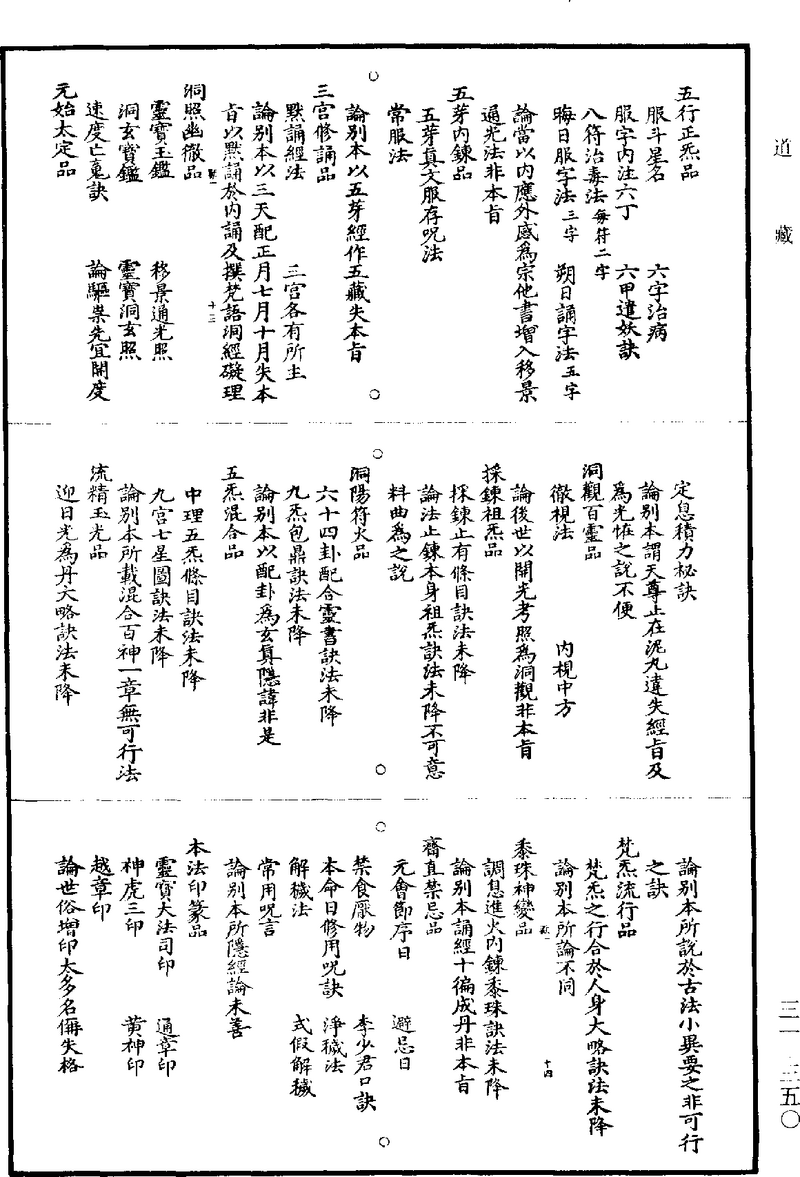 道藏
五行正炁品
服斗星名　六字治病
服字內注六丁　六甲遣妖訣
八符治毒法每符二字
晦日服字法三字　朔日誦字法五字
論當以內應外感為宗他書增入移景
通光法非本旨
五芽內鍊品
五芽真文服存呪法
常服法
論別本以五芽經作五藏失本旨
三宮修誦品
默誦經法　三宮各有所主
論別本以三天配正月七月十月失本
旨以默誦於內誦及撰梵語洞經礙理
十三
洞照幽徹品
靈寶玉鑑　移景通光照
洞玄寶鑑　靈寶洞玄照
速度亡魂訣　論驅祟先宜開度
元始太定品
定息積力秘訣
論別本謂天尊止在泥丸違失經旨及
為光怪之說不便
洞觀百靈品
徹視法　內視中方
論後世以開光考照為洞觀非本旨
採鍊祖炁品
採鍊止有條目訣法未降
論法止鍊本身祖炁訣法未降不可意
料曲為之說
洞陽符火品
六十四卦配合靈書訣法未降
九炁包鼎訣法未降
論別本以配卦為玄真隱諱非是
五炁混合品
中理五炁條目訣法未降
九宮七星圖訣法未降
論別本所載混合百神一章無可行法
流精玉光品
迎日光為丹大略訣法未降
論別本所說於古法小異要之非可行
之訣
梵炁流行品
梵炁之行合於人身大略訣法未降
論別本所論不同
十四
黍珠神變品
調息進火內鍊黍珠訣法未降
論別本誦經十徧成丹非本旨
齋直禁忌品
元會節序日　避忌日
禁食厭物　李少君口訣
本命日修用呪訣　淨穢法
解穢法　式假解穢
常用呪言
論別本所隱經論未善
本法印篆品
靈寶大法司印　通章印
神虎三印　黃神印
越章印
論世俗增印太多名倆失格
三一　三五〇